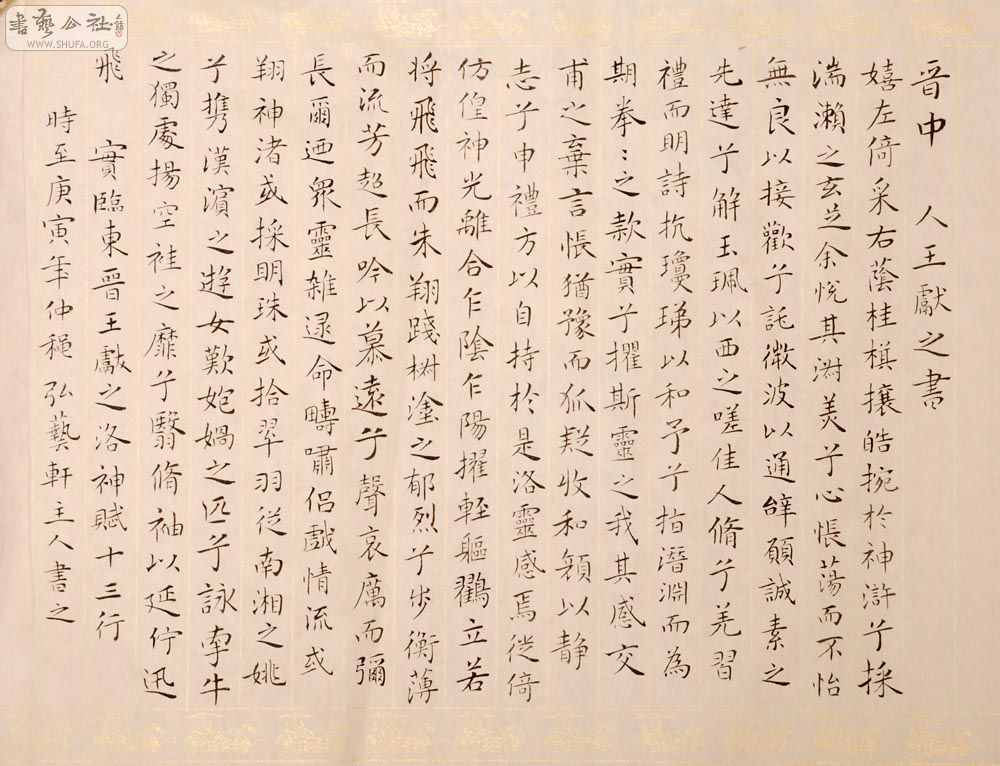 書藝公社
WWW.SHUFA.ORG
晉中 人王獻之書
嬉左倚采右蔭桂檱攘皓捥於神滸兮採
湍瀨之玄芝余悅其淑美兮心悵蕩而不怡
無良以接歡兮託微波以通辭願誠素之
先達兮解玉珮以西之嗟佳人脩兮羌習
禮而明詩抗瓊珶以和予兮指潛淵而為
期拳:之款實兮懼斯靈之我其感交
甫之棄言悵猶豫而狐疑收和顏以静
志兮申禮方以自持於是洛靈感焉徙倚
仿偟神光離合乍陰乍陽擢輊軀鸖立若
将飛飛而未翔踐樹塗之郁烈兮步衡薄
而流芳超長吟以慕遠兮聲哀厲而彌
長爾迺衆靈雜遝命疇嘯侣戲情流或
翔神渚或採明珠或拾翠羽從南湘之姚
兮携漢濱之遊女歎炮媧之匹兮詠牽牛
之獨處揚空袿之靡兮翳脩袖以延佇迅
飛 實臨東晉王獻之洛神賦十三行
時至庚寅年仲穐弘藝軒主人書之